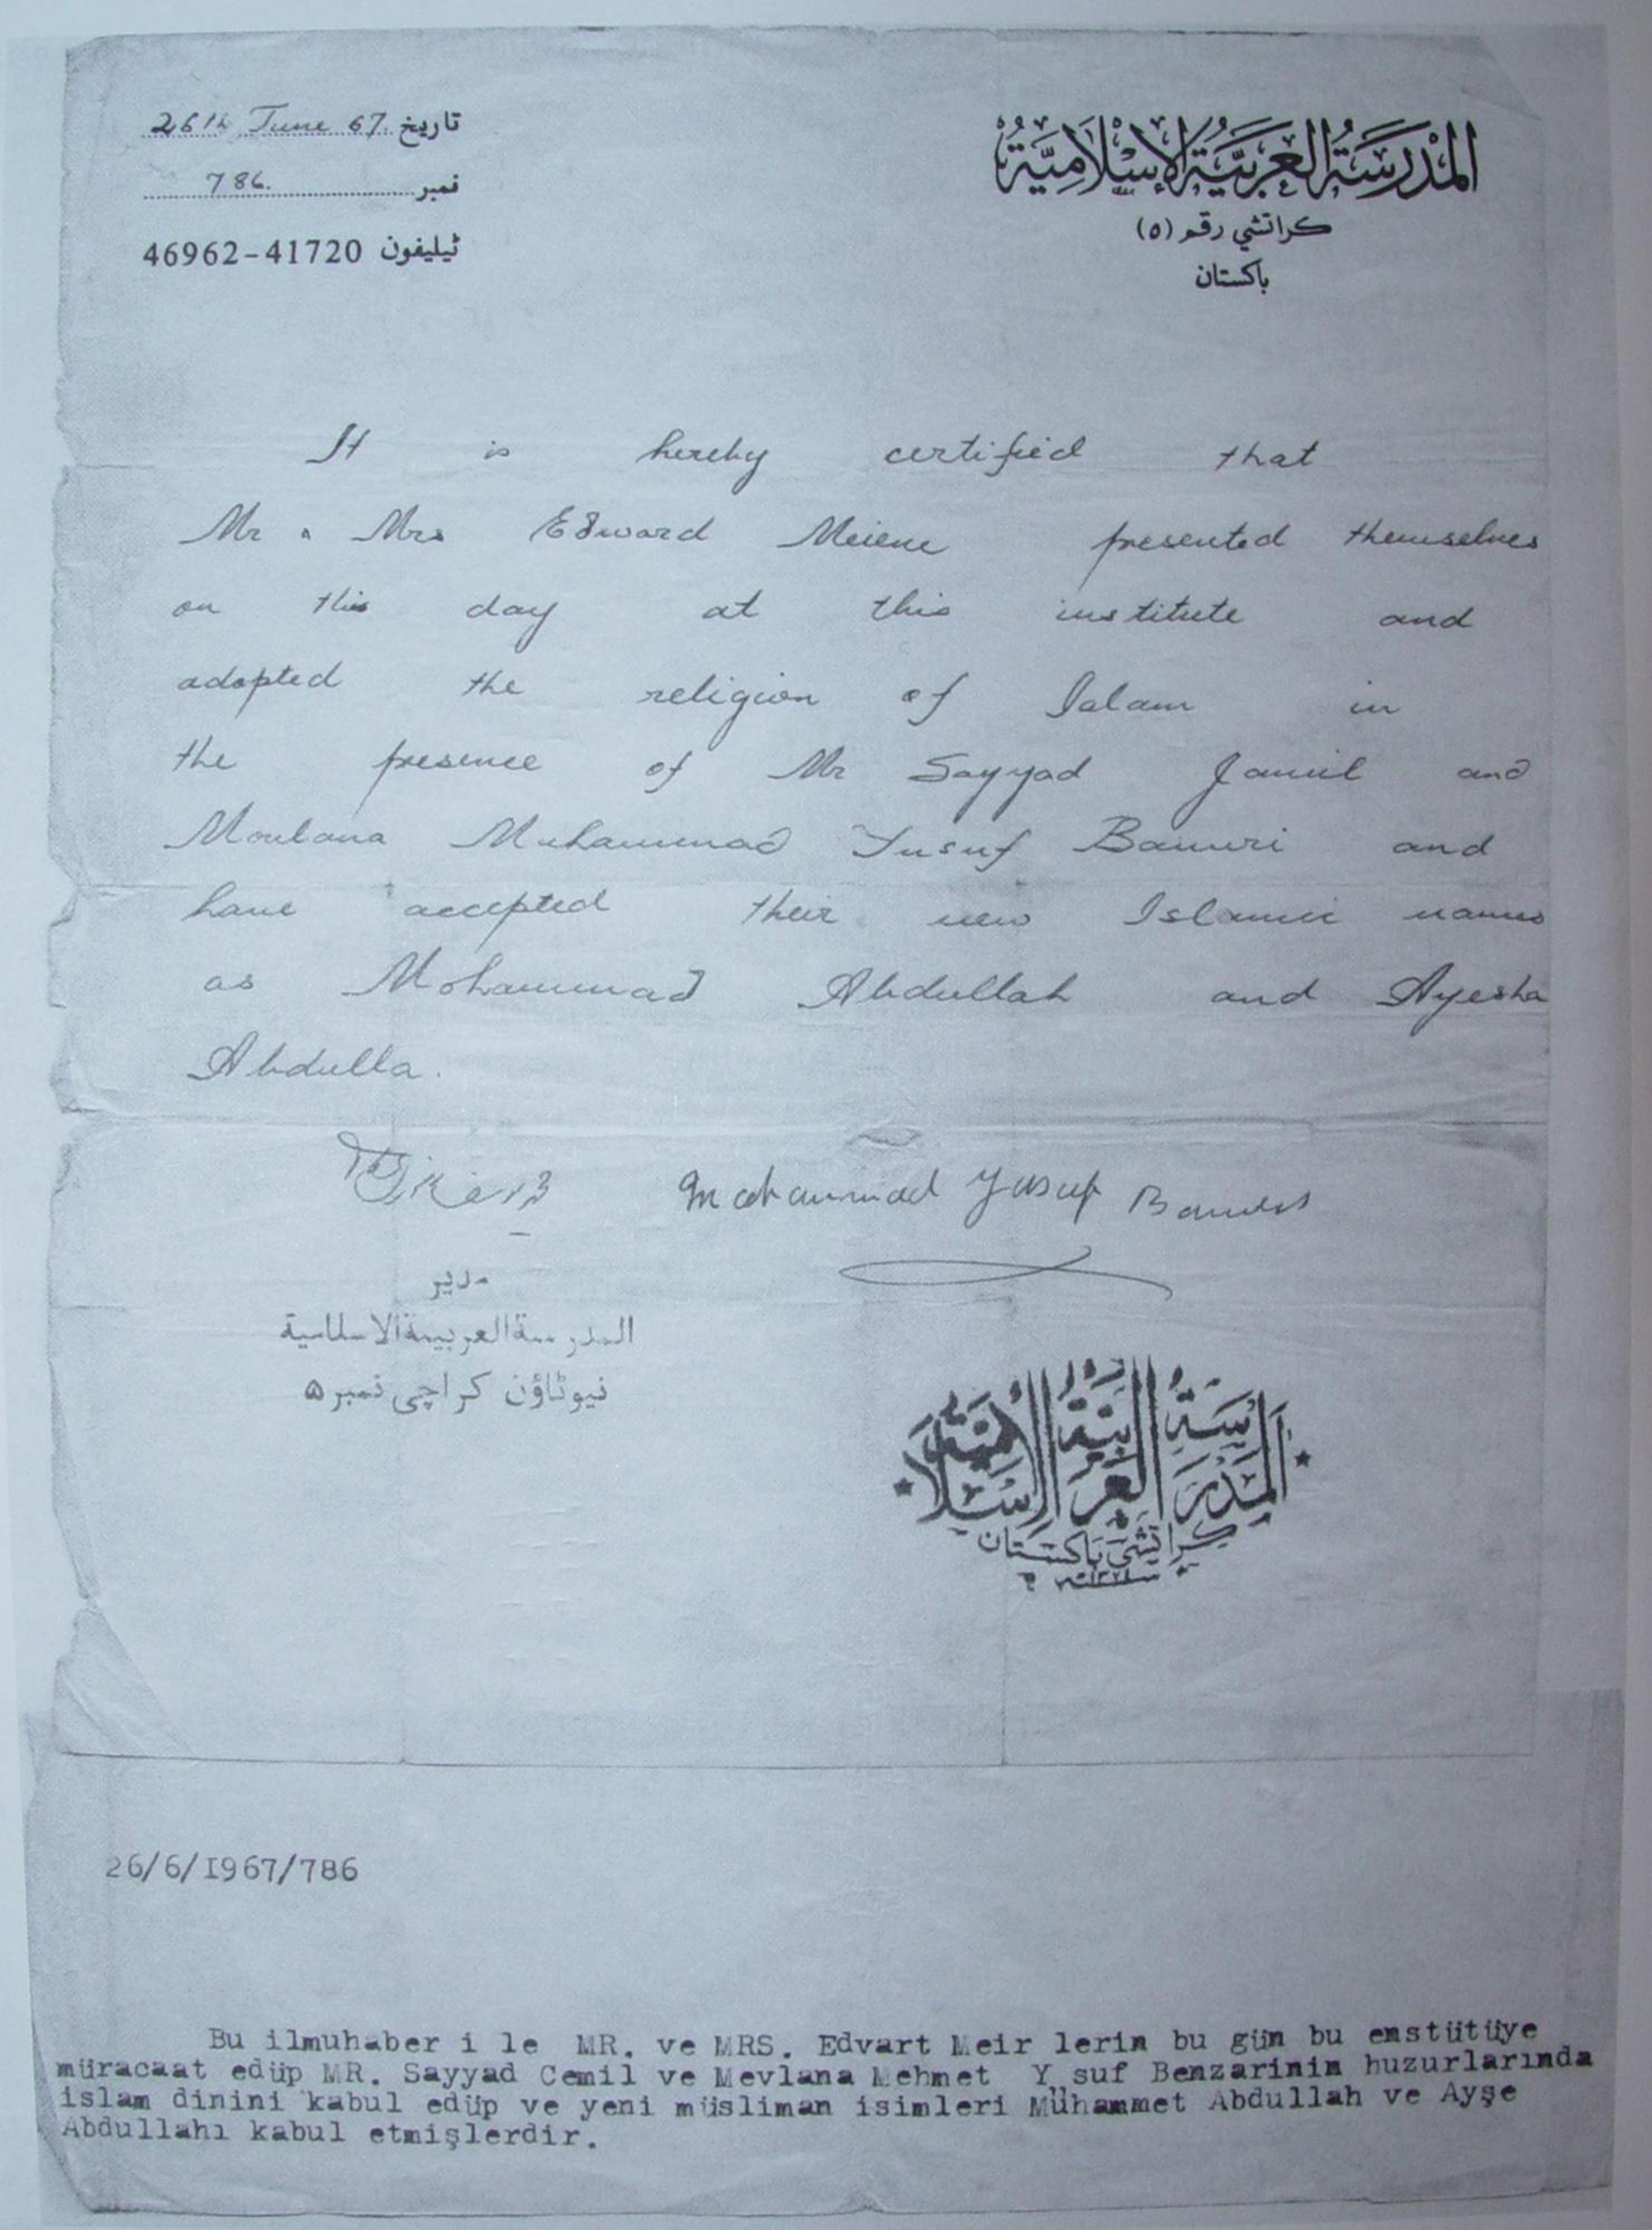 تاريخ 26th June 67.
نمبر 786.
ٹيليفون 41720-46962
المَدْرَسَةُ العَرَبيَّةُ الإِسْلَامِيَّةُ
كراتشي رقم (٥)
باكستان
It is hereby certified that
Mr & Mrs Edward Meiene presented themselves
on this day at this institute and
adopted the religion of Islam in
the presence of Mr Sayyad Jamil and
Moulana Muhammad Yusuf Banuri and
have accepted their new Islamic names
as Mohammad Abdullah and Ayesha
Abdulla.
Mohammad Yusuf
مدير
المدرسة العربية الاسلامية
نيوٹاؤن كراچی نمبر ۵
المَدْرَسَةُ العَرَبيَّةُ الإِسْلَامِيَّةُ
كراتشي باكستان
26/6/I967/786
Bu ilmuhaber i le MR. ve MRS. Edvart Meir lerin bu gün bu enstütüye
müracaat edüp MR. Sayyad Cemil ve Mevlana Mehmet Yüsuf Benzarinin huzurlarında
islam dinini kabul edüp ve yeni müsliman isimleri Mühammet Abdullah ve Ayşe
Abdullahı kabul etmişlerdir.